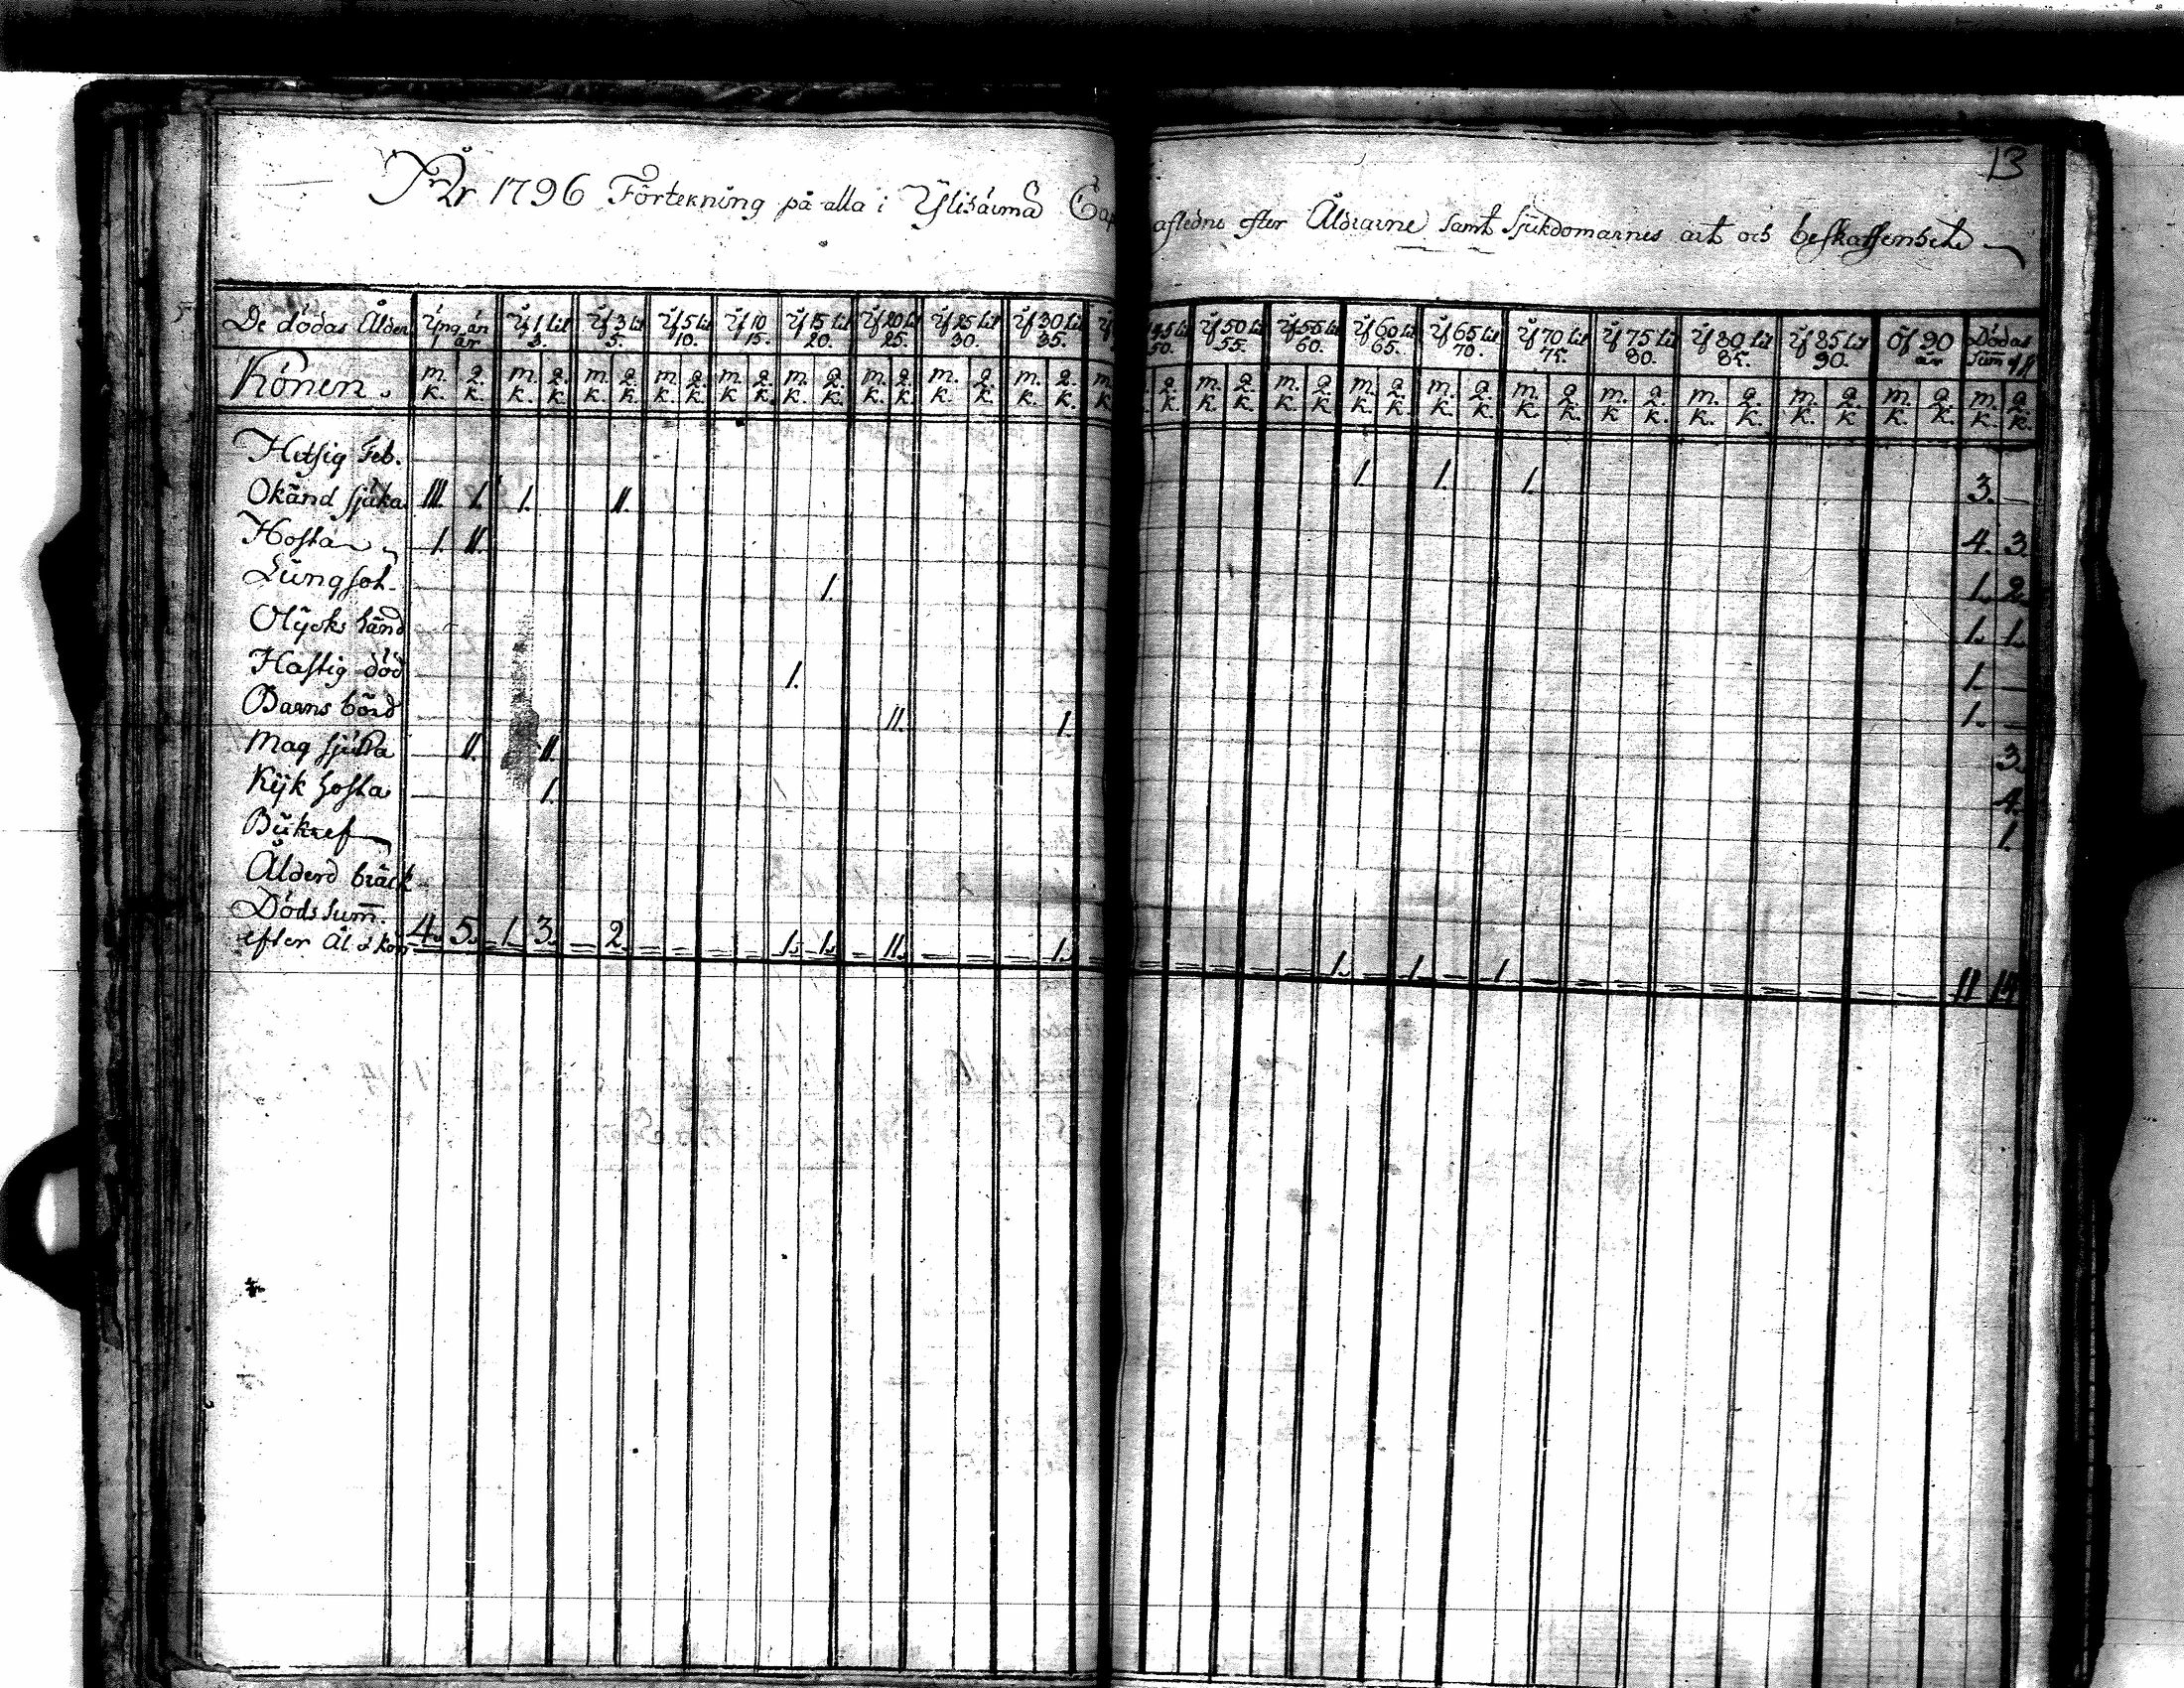 13
År 1796 Förtekning på alla i Ylisäima Cap afledne efter Åldrarne samt Sjukdomarnes art och beskaffenhet
De dödas Ålder Yng än 1 år Yf 1 til 3. Yf 3 til 5. Yf 5 til 10. Yf 10 15. Yf 15 til 20. Yf 20 til 25. Yf 25 til 30. Yf 30 til 35. 45 til 50. Yf 50 til 55. Yf 55 til 60. Yf 60 til 65. Yf 65 til 70. Yf 70 til 75. Yf 75 til 80. Yf 80 til 85. Yf 85 til 90. Öf 90 år Dödas Sum
Könen. m. k. q. k. m. k. q. k. m. k. q. k. m. k. q. k. m. k. q. k. m. k. q. k. m. k. q. k. m. k. q. k. m. k. q. k. m. k. q. k. m. k. q. k. m. k. q. k. m. k. q. k. m. k. q. k. m. k. q. k. m. k. q. k. m. k. q. k. m. k. q. k. m. k. q. k. m. k. q. k.
Hetsig Feb. 1. 1. 1. 3. —
Okänd sjuka III. 1. 1. II. 4. 3.
Hosta 1. II. 1. 2.
Lungsot. 1. 1. 1.
Olycks händ 1. —
Hastig död 1. 1. —
Barns börd II. 1. 3.
Mag sjuka II. II. 4.
Kijk hosta 1. 1.
Bukref
Ålderd bräck
Döds sum.
efter Ål o kön 4. 5. 1. 3. 2. 1. 1. II. 1. 1. 1. 1. 11 14